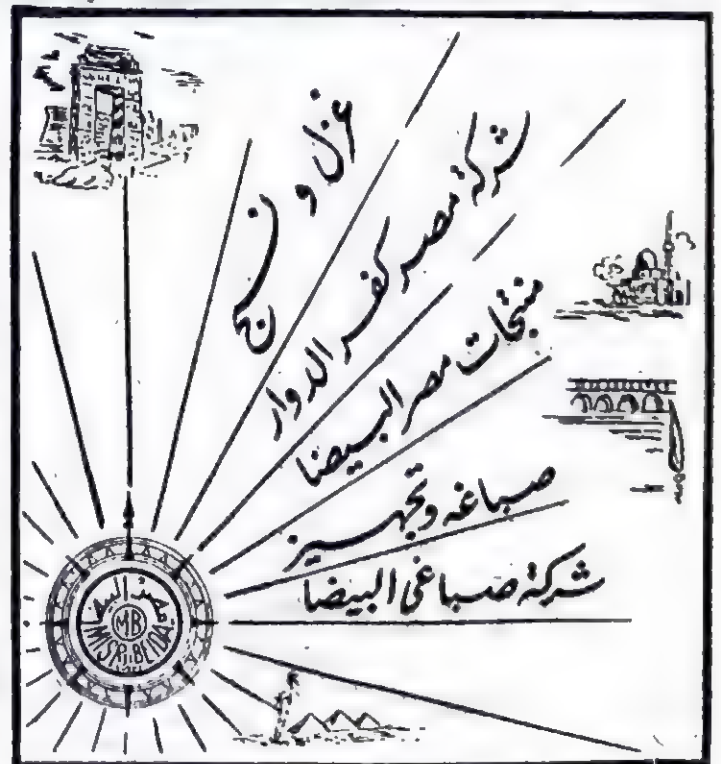 غزل و نسج
شركة مصر كفر الدوار
منتجات مصر البيضا
صباغه وتجهيز
شركة صباغى البيضا
مصر البيضا
MB
MISR BEIDA